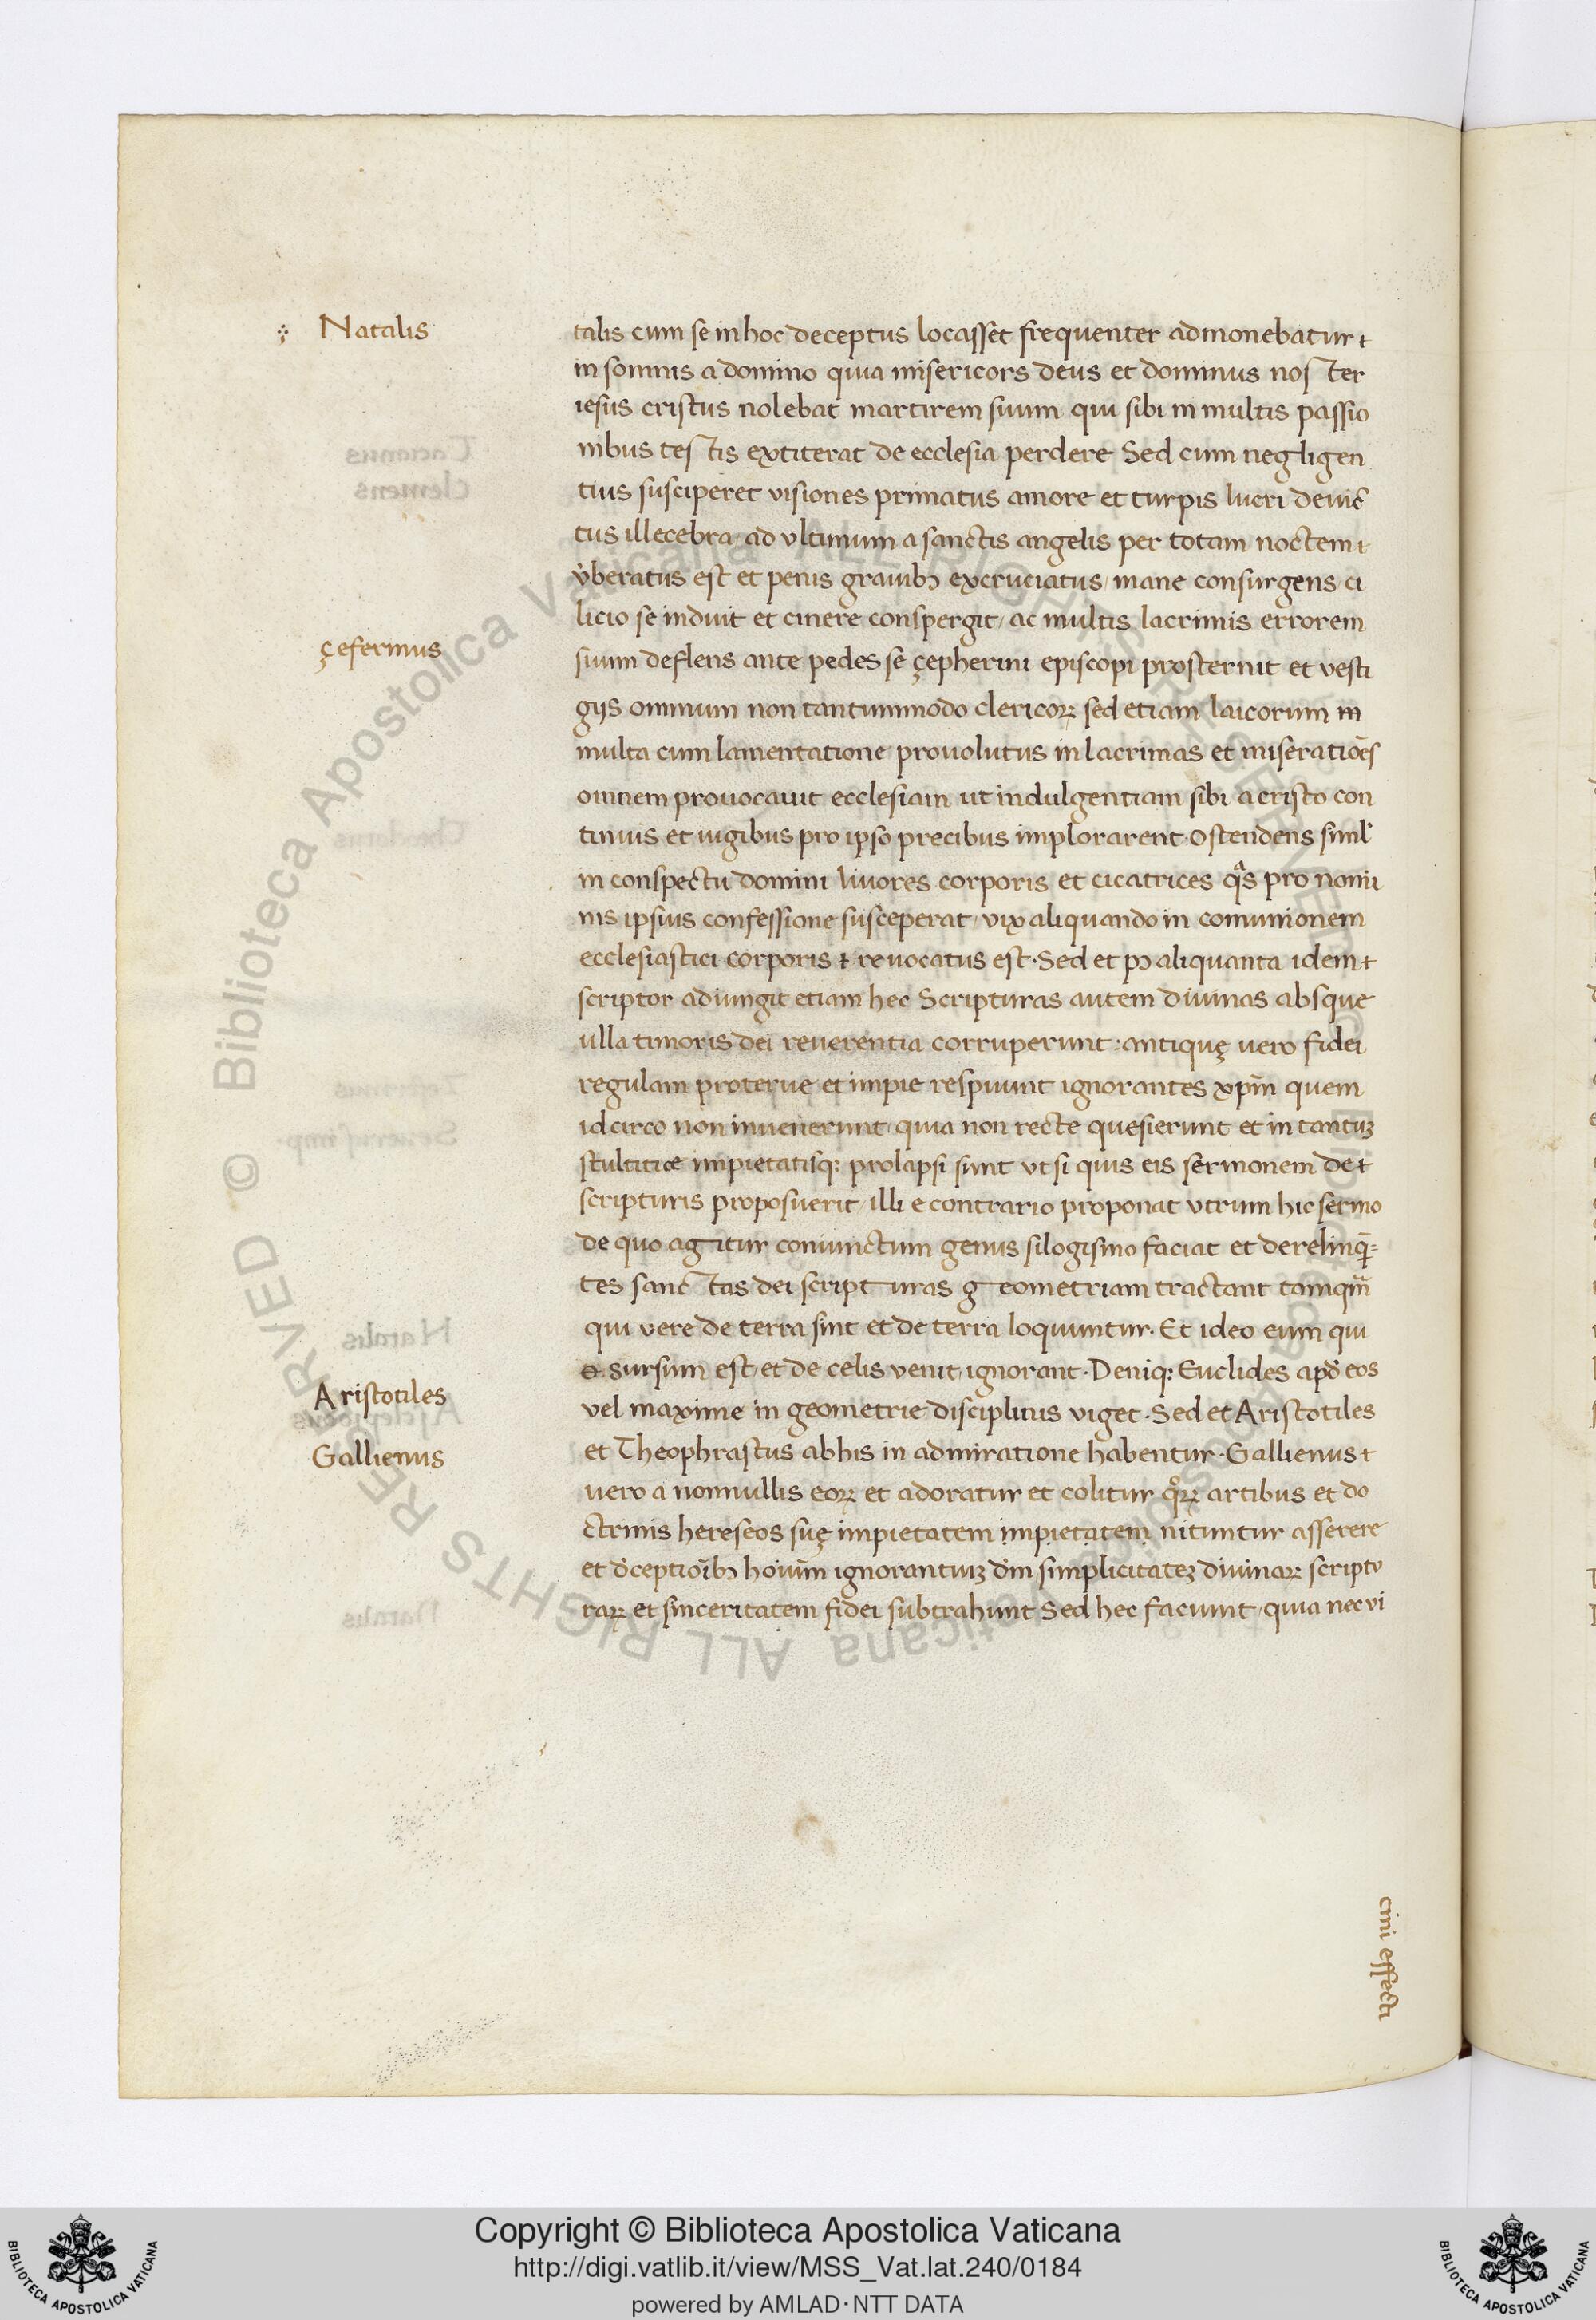 Natalis
talis cum se in hoc deceptus locasset frequenter admonebatur
in somnis a domino quia misericors deus et dominus noster
iesus cristus nolebat martirem suum qui sibi in multis passio
nibus testis extiterat de ecclesia perdere Sed cum negligen
tius susciperet visiones primatus amore et turpis lucri deuic̄
tus illecebra / ad vltimum a sanctis angelis per totam noctem
v̓beratus est et penis grauibꝫ excruciatus / mane consurgens ci
licio se induit et cinere conspergit / ac multis lacrimis errorem
çeferinus
suum deflens ante pedes se çepherini episcopi prosternit et vesti
gijs omnium non tantummodo clericoꝝ sed etiam laicorum
multa cum lamentatione prouolutus in lacrimas et miseratiōes
omnem prouocauit ecclesiam ut indulgentiam sibi a cristo con
tinuis et iugibus pro ipso precibus implorarent. Ostendens siml̓
in conspectu domini liuores corporis et cicatrices qͣs pro nomi
nis ipsius confessione susceperat / vix aliquando in comunionem
ecclesiastici corporis revocatus est. Sed et pꝰ aliquanta idem
scriptor adiungit etiam hec Scripturas autem diuinas absque
ulla timoris dei reuerentia corruperunt: antiquę uero fidei
regulam proterue et impie respuunt ignorantes xp̄m quem
idcirco non inuenerunt / quia non recte quesierunt et in tantuꝫ
stultitiæ impietatisqꝫ prolapsi sunt vt si quis eis sermonem de
scripturis proposuerit / illi e contrario proponat vtrum hic sermo
de quo agitur coniunctum genus silogismo faciat et derelinq̄-
tes sanctas dei scripturas geometriam tractant tamqm̄
qui vere de terra sint et de terra loquuntur. Et ideo eum qui
sursum est / et de celis venit / ignorant. Deniqꝫ Euclides apđ eos
Aristotiles
vel maxime in geometrie disciplinis viget. Sed et Aristotiles
Gallienus
et Theophrastus ab his in admiratione habentur. Gallienus
uero a nonnullis eoꝝ et adoratur et colitur qͦꝝ artibus et do
ctrinis hereseos suę impietatem impietatem nituntur asserere
et d̓ceptioībꝫ hoiūm ignorantiuꝫ dm̄ simplicitateꝫ diuinaꝝ scriptu
raꝝ et sinceritatem fidei subtrahunt Sed hec faciunt / quia nec vi
cini effecti
© Biblioteca Apostolica Vaticana ALL RIGHTS RESERVED
© Biblioteca Apostolica Vaticana ALL RIGHTS RESERVED
Copyright © Biblioteca Apostolica Vaticana
http://digi.vatlib.it/view/MSS_Vat.lat.240/0184
powered by AMLAD·NTT DATA
BIBLIOTECA APOSTOLICA VATICANA
BIBLIOTECA APOSTOLICA VATICANA